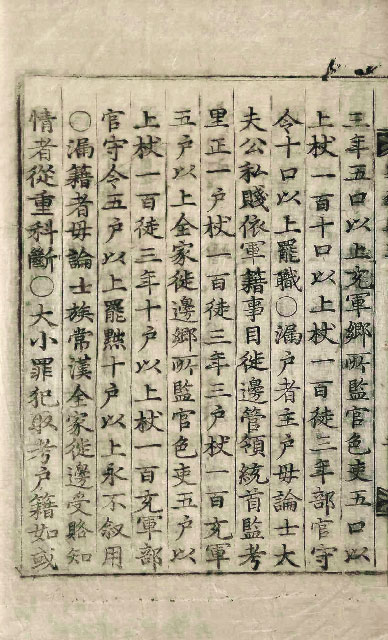 三年五口以上充軍鄕所監官色吏五口以
上杖一百十口以上杖一百徒三年部官守
令十口以上罷職○漏戶者主戶毋論士大
夫公私賤依軍籍事目徙邊管領統首監考
里正一戶杖一百徒三年三戶杖一百充軍
五戶以上全家徙邊鄕所監官色吏五戶以
上杖一百徒三年十戶以上杖一百充軍部
官守令五戶以上罷黜十戶以上永不敍用
○漏籍者毋論士族常漢全家徙邊受賂知
情者從重科斷○大小罪犯取考戶籍如或